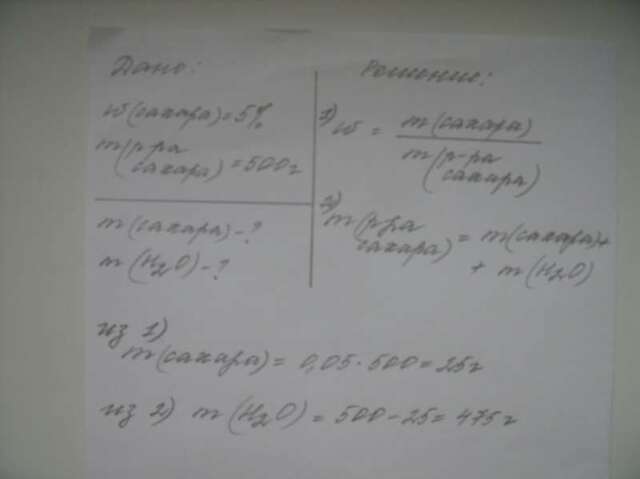 Дано:
w(сахара)=5%
m(р-ра
сахара)=500г
m(сахара)-?
m(H₂O)-?
Решение:
1) w = m(сахара)
m(р-ра
сахара)
2) m(р-ра
сахара) = m(сахара)+
+ m(H₂O)
из 1)
m(сахара)= 0,05·500=25г
из 2) m(H₂O) = 500-25=475г